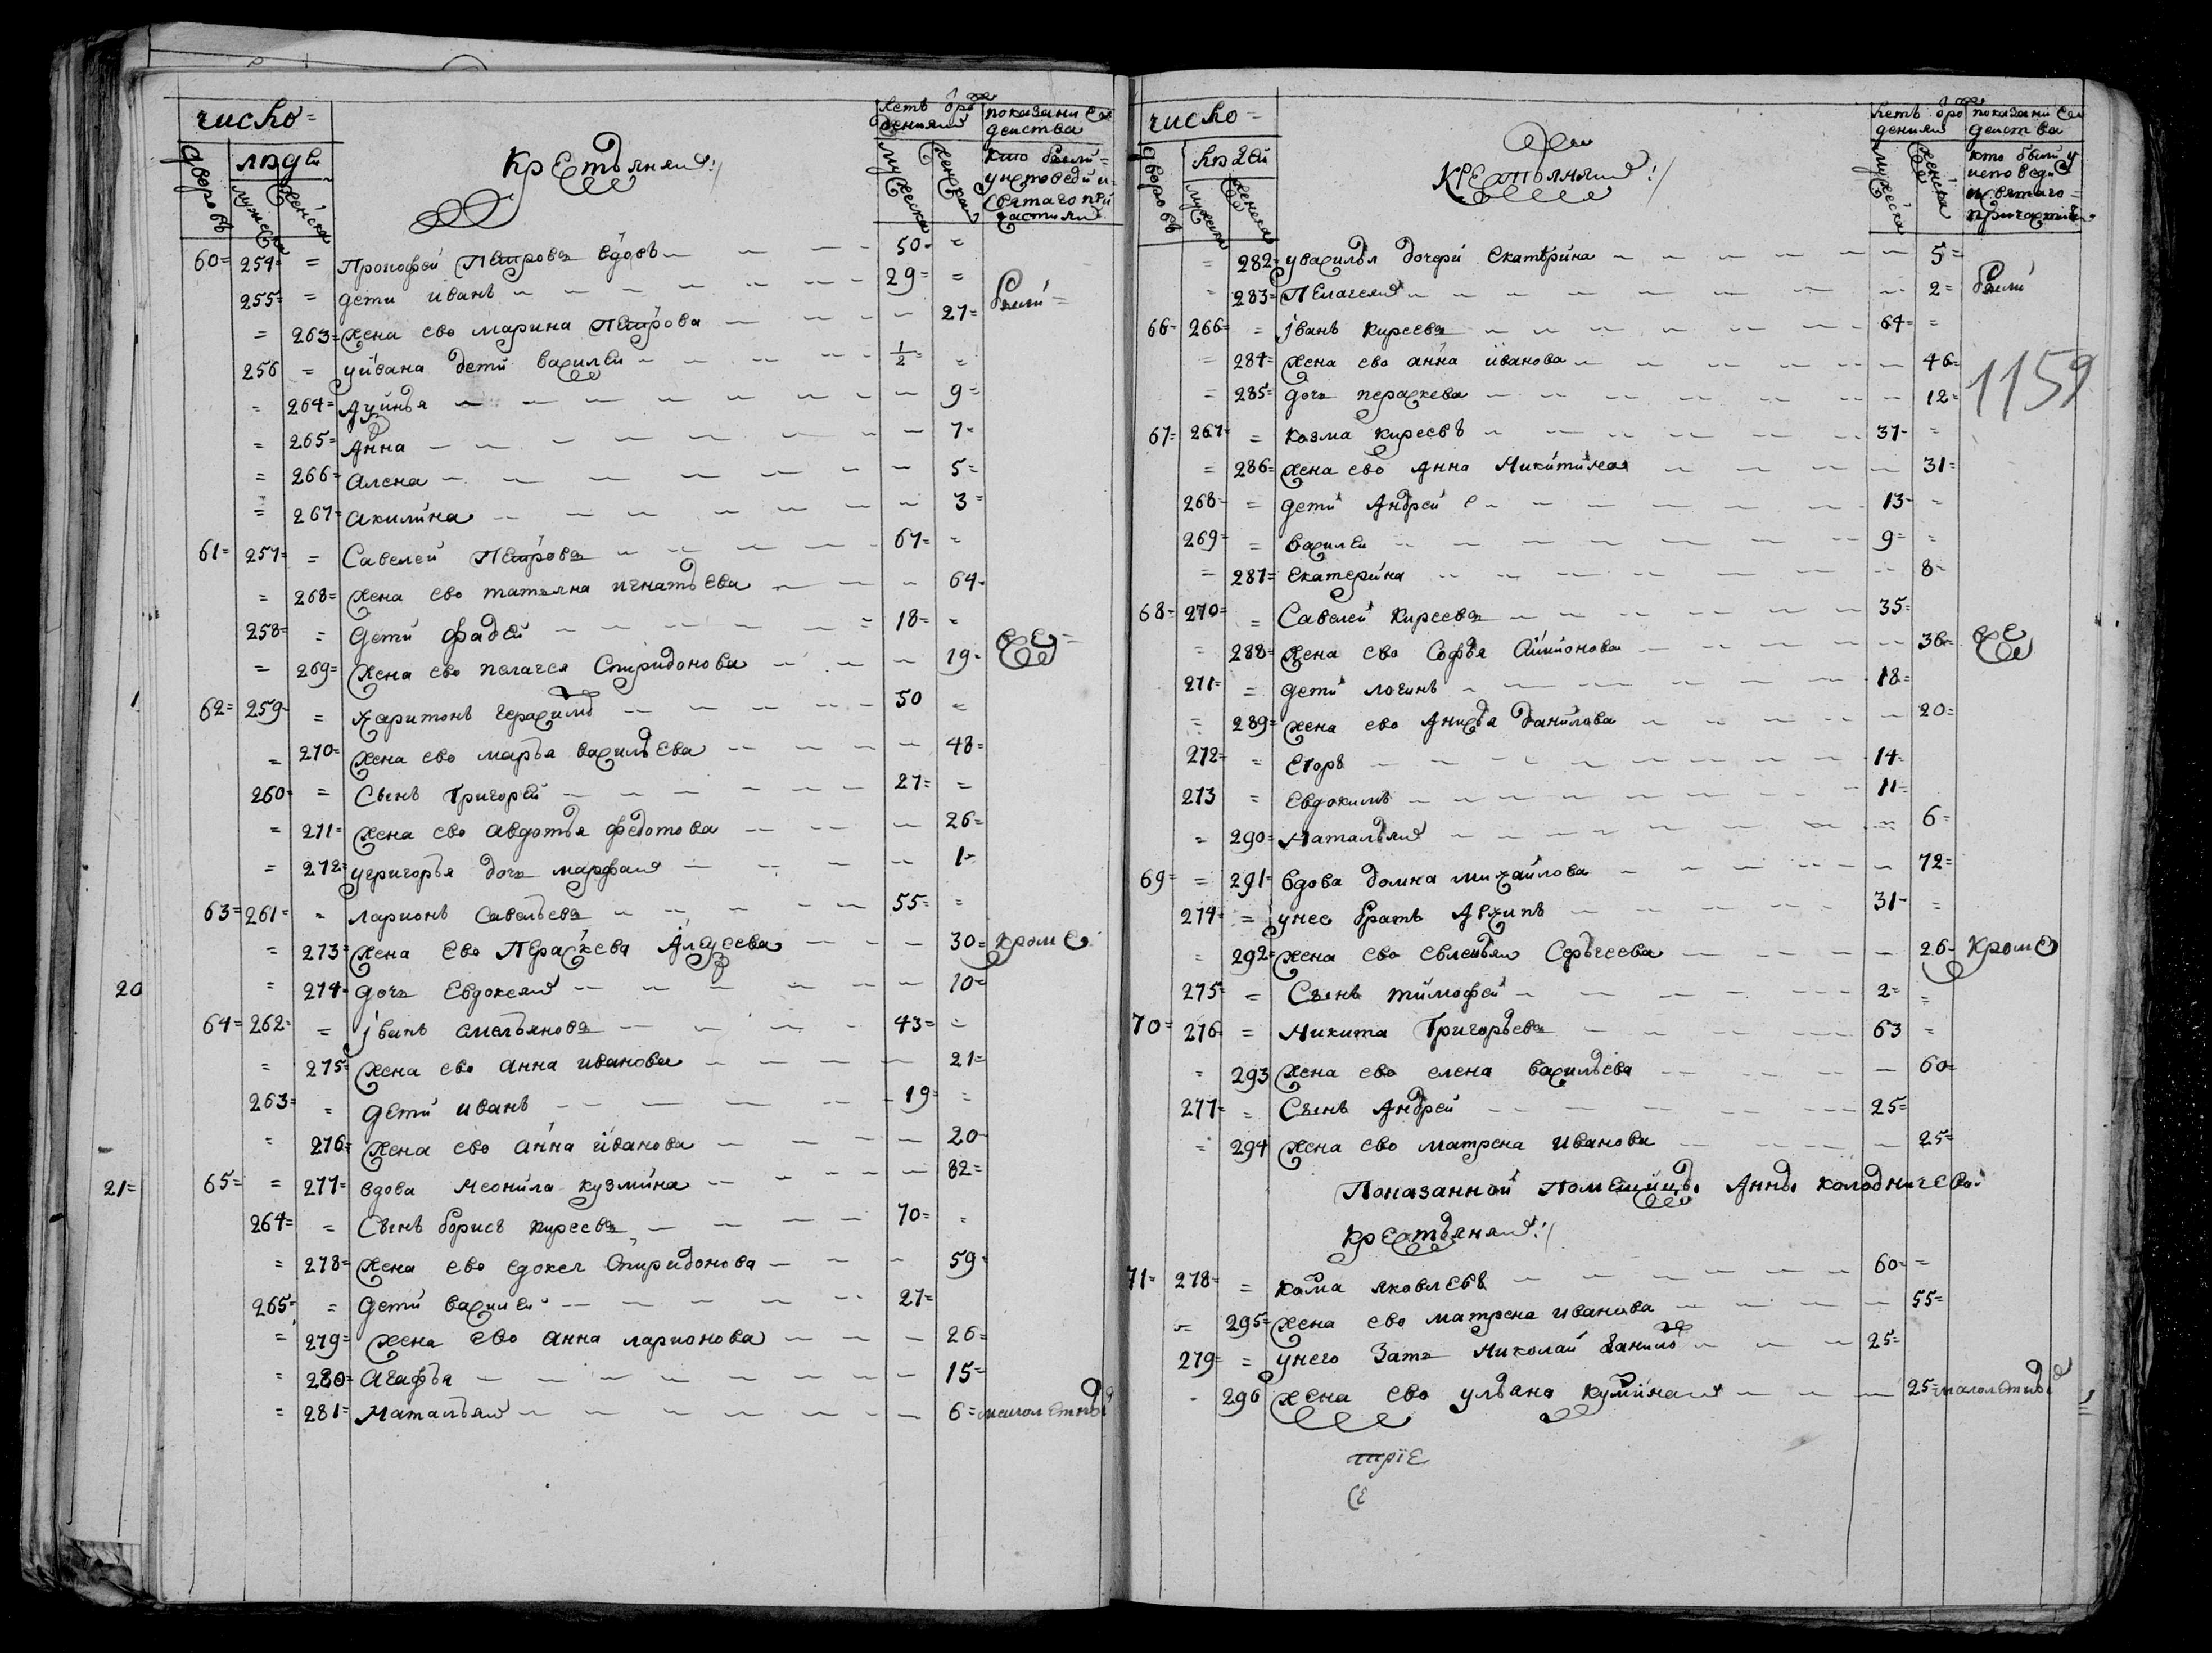 число=
дворовъ
людеи
мужеска
женска
Крестьяня:/
летъ от рождения
мужеска
женска
показание действа
кто были=
у исповеди и=
святаго при
частия
60= 254= = Прокофеи Петровъ вдовъ 50= =
255= = дети иванъ 29= = были=
= 263= жена ево марина Петрова 27=
256 = у ивана дети василеи 1/2= =
= 264= Аѳинья 9=
= 265= Анна 7=
= 266= алена 5=
= 267= акилина 3=
61= 257= = Савелеи Петровъ 67= =
= 268= жена ево татьяна игнатьева 64=
258= = дети фадеи 18= =
= 269= жена ево пелагея Спиридонова 19= все=
62= 259= = харитонъ герасимовъ 50 =
= 270= жена ево марья васильева 48=
260= = Сынъ Григореи 27= =
= 271= жена ево авдотья федотова 26=
= 272= у григорья дочь марфа 1=
63= 261= = ларионъ савельевъ 55= =
= 273= жена ево Параскева Алексеева 30= кроме
20
= 274= дочь Евдокея 10=
64= 262= = іванъ емельяновъ 43= =
= 275= жена ево анна иванова 21=
263= = дети иванъ 19= =
= 276= жена ево анна иванова 20=
21= 65= = 277= вдова Неонила кузмина 82=
264= = Сынъ борисъ киреевъ 70= =
= 278= жена ево едокея Спиридонова 59=
265= = дети василеи 27=
= 279= жена ево анна ларионова 26=
= 280= агафья 15=
= 281= Наталья 6= малолетныя
число=
дворовъ
людеи
мужеска
женска
Крестьяня:/
летъ от рождения
мужеска
женска
показание действа
кто были у
исповеди
и святаго=
причастия=
= 282= у василья дочери екатерина 5=
= 283= Пелагея 2= были
66= 266= = іванъ киреевъ 64= =
= 284= жена ево анна иванова 46=
= 285= дочь пераскева 12=
1159
67= 267= = козма киреевъ 37= =
= 286= жена ево Анна Никитина 31=
268= = дети Андреи 13= =
269= = василеи 9= =
= 287= екатерина 8=
68= 270= = Савелеи киреевъ 35=
= 288= жена ево Софья Антонова 36= все
271= = дети логинъ 18=
= 289= жена ево Анисья данилова 20=
272= = Егоръ 14=
273 = Евдокимъ 11=
= 290= Наталья 6=
69= = 291= вдова домна михаилова 72=
274= = у нее братъ Архипъ 31= =
= 292= жена ево Сергеева 26= кроме
275= = Сынъ тимофеи 2= =
70= 276= = Никита Григорьевъ 63 =
= 293 жена ево елена васильева 60=
277= = Сынъ Андреи 25=
= 294 жена ево матрена иванова 25=
Показанной помещицы Анны колодничевой
крестьяня:/
71= 278= = козма яковлевъ 60= =
= 295= жена ево матрена иванова 55=
279= = у него зать Николаи даниловъ 25=
= 296 жена ево ульяна кузмина 25= малолетныя